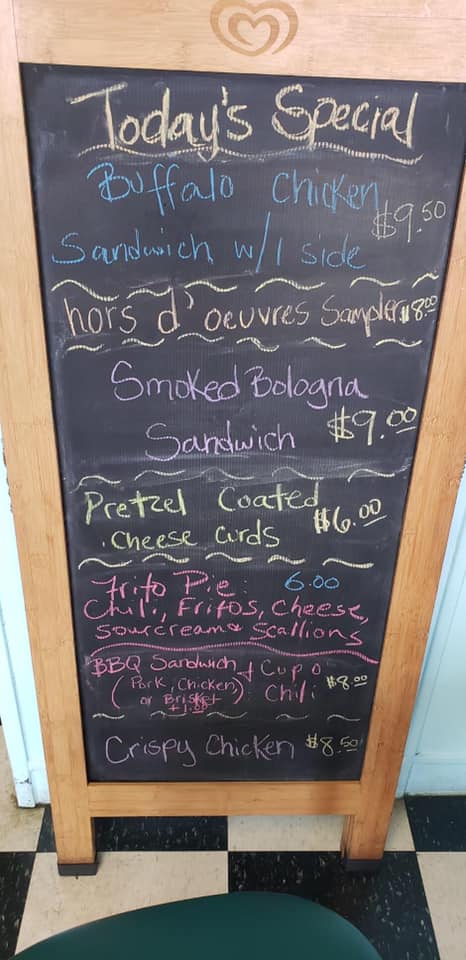 Today's Special
Buffalo Chicken
$9.50
Sandwich w/1 side
hors d'oeuvres Sampler $8.00
Smoked Bologna
Sandwich $9.00
Pretzel Coated
$6.00
cheese curds
Frito Pie: 6.00
Chili, Fritos, Cheese,
Sourcream & Scallions
BBQ Sandwich + Cup o
(Pork, Chicken) Chili $8.00
or Brisket
+1.00
Crispy Chicken $8.50